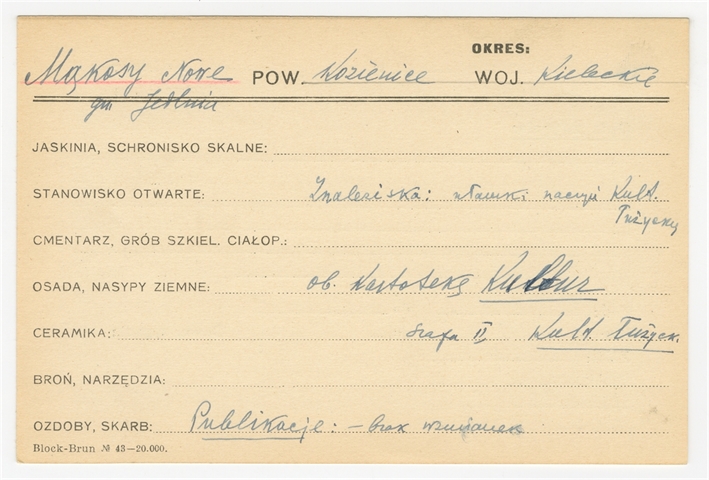 OKRES:
Mąkosy Nowe POW. Kozienice WOJ. Kieleckie
gm Jedlnia
JASKINIA, SCHRONISKO SKALNE:
STANOWISKO OTWARTE: Znaleziska: ułamki naczyń Kult.
Łużyckiej
CMENTARZ, GRÓB SZKIEL. CIAŁOP.:
OSADA, NASYPY ZIEMNE: ob. Kartotekę Kultur
CERAMIKA: szafa II, Kult. Łużyck.
BROŃ, NARZĘDZIA:
OZDOBY, SKARB: Publikacje: – brak wzmianek
Block-Brun № 43—20.000.